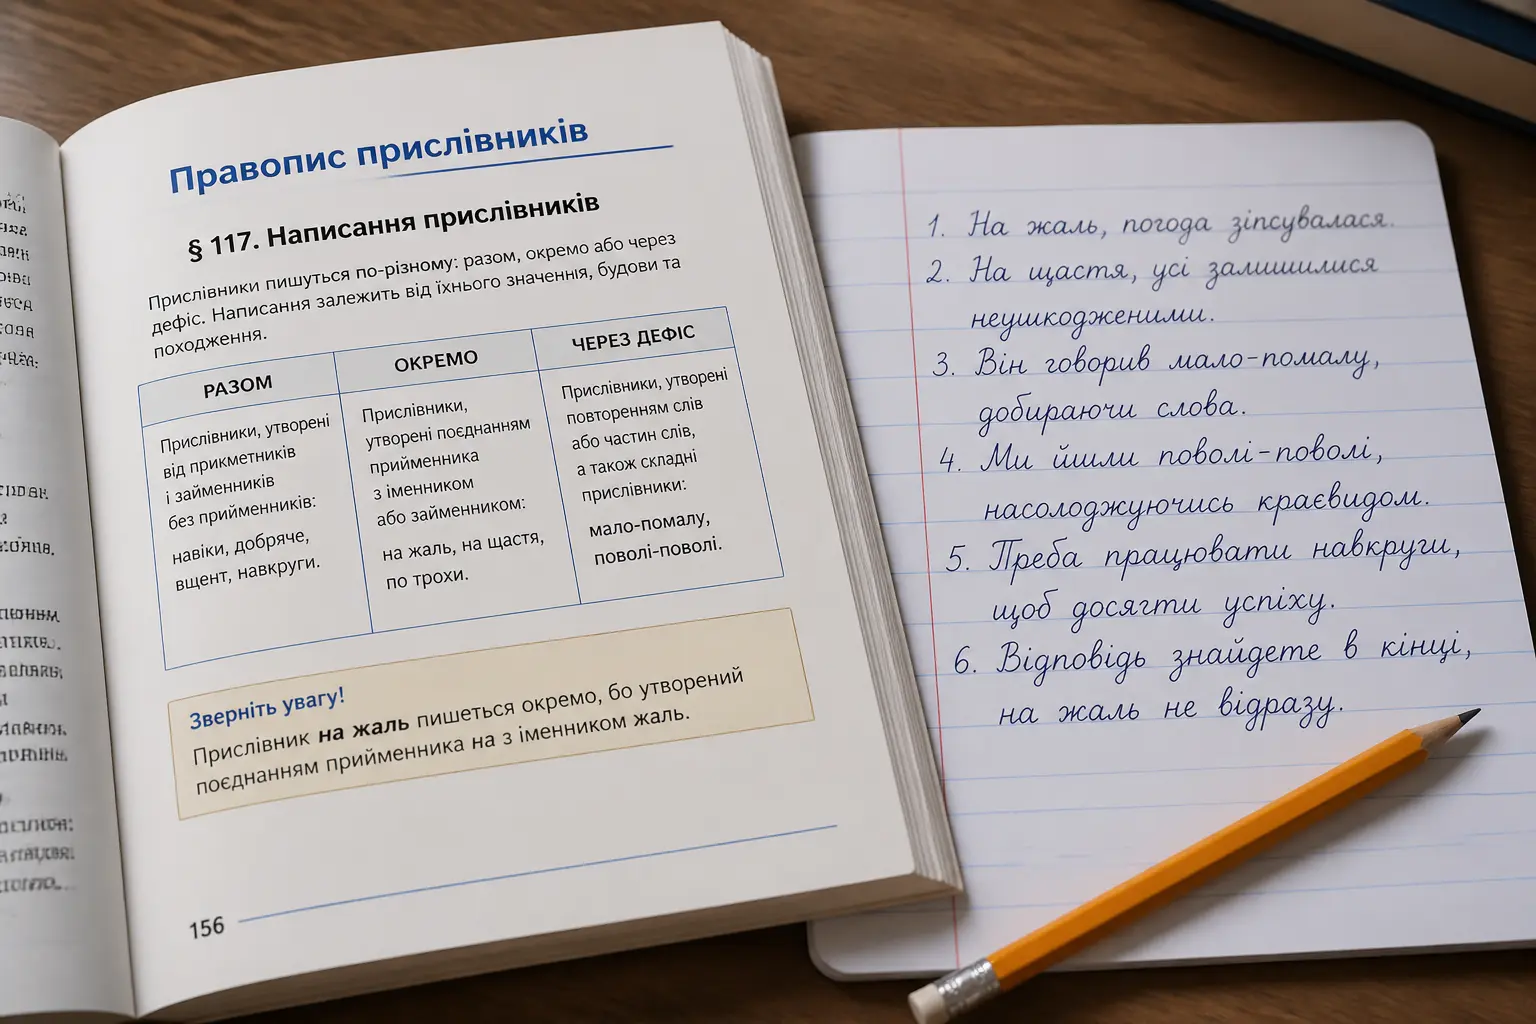 Правопис прислівників
§ 117. Написання прислівників
Прислівники пишуться по-різному: разом, окремо або через
дефіс. Написання залежить від їхнього значення, будови та
походження.
РАЗОМ
Прислівники, утворені
від прикметників
і займенників
без прийменників:
навіки, добряче,
вщент, навкруги.
ОКРЕМО
Прислівники,
утворені поєднанням
прийменника
з іменником
або займенником:
на жаль, на щастя,
по трохи.
ЧЕРЕЗ ДЕФІС
Прислівники, утворені
повторенням слів
або частин слів,
а також складні
прислівники:
мало-помалу,
поволі-поволі.
Зверніть увагу!
Прислівник на жаль пишеться окремо, бо утворений
поєднанням прийменника на з іменником жаль.
156
1. На жаль, погода зіпсувалася.
2. На щастя, усі залишилися
неушкодженими.
3. Він говорив мало-помалу,
добираючи слова.
4. Ми йшли поволі-поволі,
насолоджуючись краєвидом.
5. Треба працювати навкруги,
щоб досягти успіху.
6. Відповідь знайдете в кінці,
на жаль не відразу.